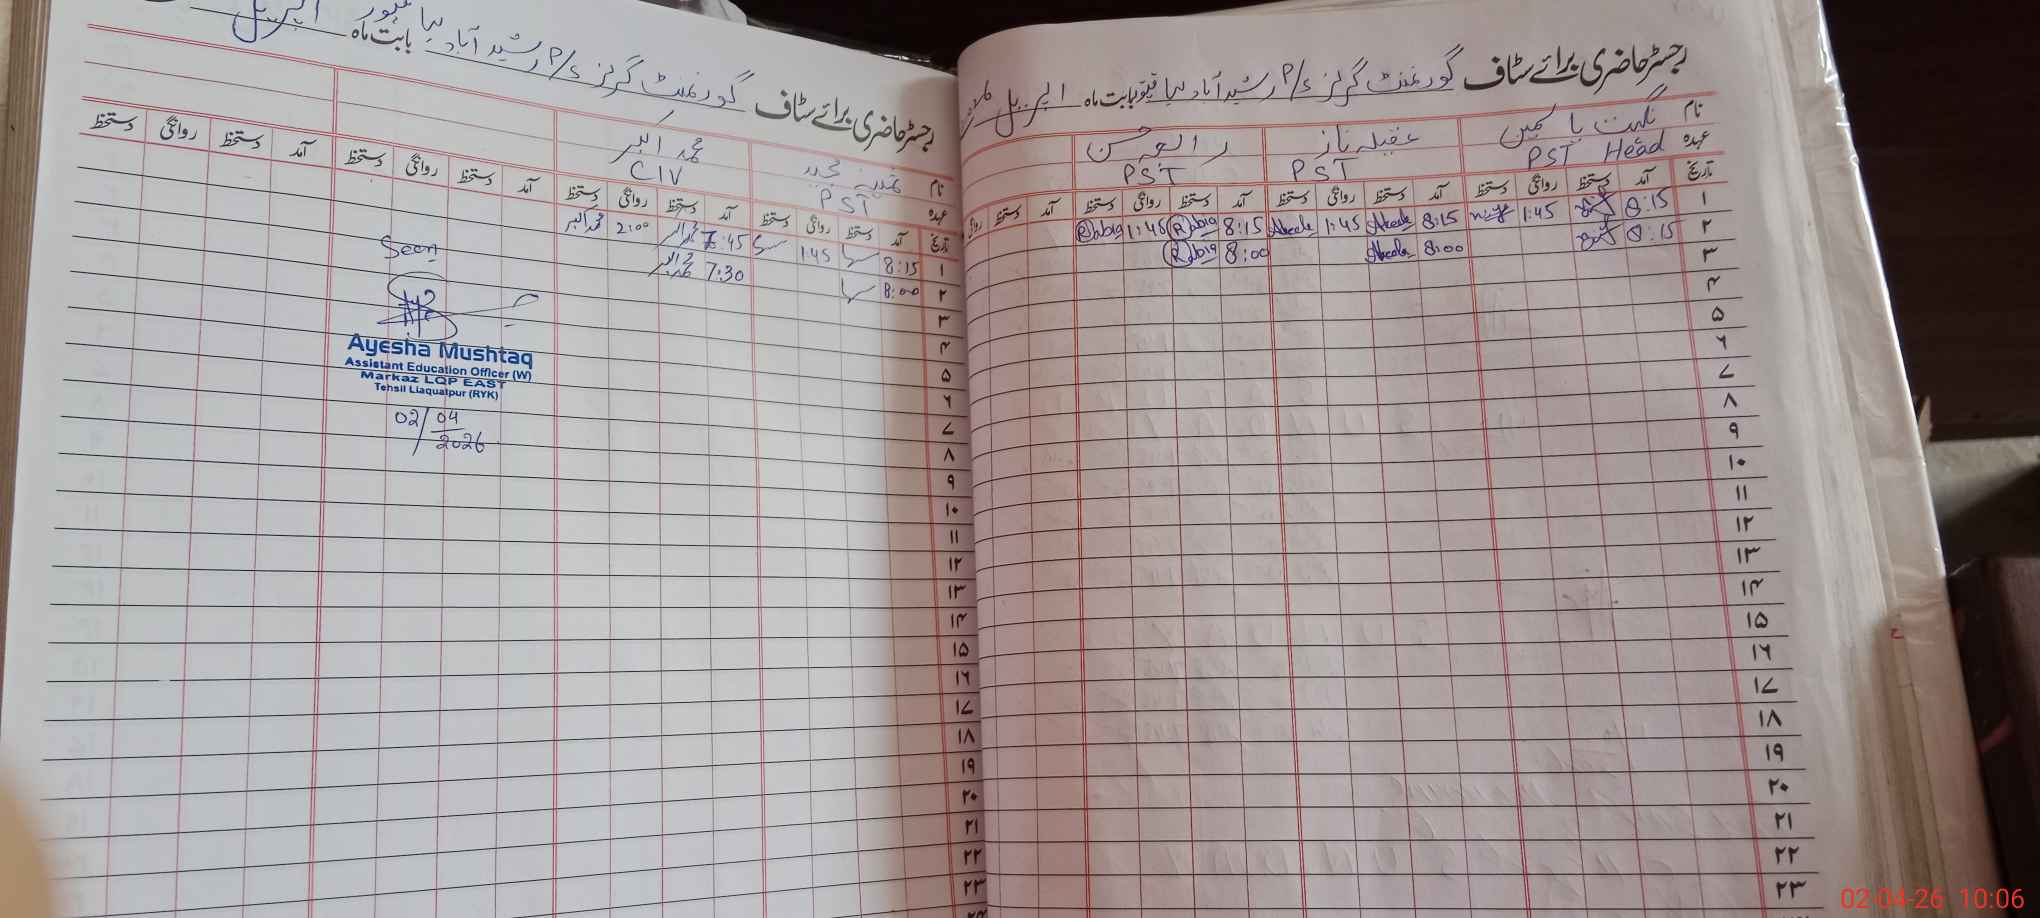 رجسٹر حاضری برائے سٹاف گورنمنٹ گرلز P/S رشید آباد بابت ماہ اپریل
نام نگہت یاسمین عقیلہ ناز
عہدہ PST Head PST PST
تاریخ آمد دستخط روانگی دستخط آمد دستخط روانگی دستخط آمد دستخط روانگی دستخط آمد دستخط روانگی
۱ 8:15 1:45 8:15 Akeela 1:45 Akeela 8:15 Rabia 1:45 Rabia
۲ 8:15 8:00 Akeela 8:00 Rabia
۳
۴
۵
۶
۷
۸
۹
۱۰
۱۱
۱۲
۱۳
۱۴
۱۵
۱۶
۱۷
۱۸
۱۹
۲۰
۲۱
۲۲
۲۳
رجسٹر حاضری برائے سٹاف گورنمنٹ گرلز P/S رشید آباد بابت ماہ اپریل
نام محمد اکبر
عہدہ PST C IV
تاریخ آمد دستخط روانگی دستخط آمد دستخط روانگی دستخط آمد دستخط روانگی دستخط آمد دستخط روانگی دستخط
۱ 8:15 1:45 7:45 محمد اکبر 2:00 محمد اکبر
۲ 8:00 7:30 محمد اکبر
۳
۴
۵
۶
۷
۸
۹
۱۰
۱۱
۱۲
۱۳
۱۴
۱۵
۱۶
۱۷
۱۸
۱۹
۲۰
۲۱
۲۲
۲۳
Seen
Ayesha Mushtaq
Assistant Education Officer (W)
Markaz LQP EAST
Tehsil Liaquatpur (RYK)
02/04
2026
02-04-26 10:06